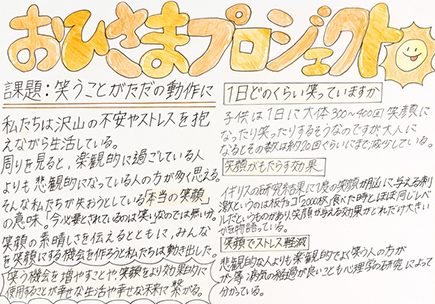 おひさまプロジェクト
課題：笑うことがただの動作に
私たちは沢山の不安やストレスを抱
えながら生活している。
周りを見ると、楽観的に過ごしている人
よりも悲観的になっている人の方が多く思える。
そんな私たちが失おうとしている「本当の笑顔」
の意味。今必要とされているのは笑いなのでは無いか。
笑顔の素晴しさを伝えるとともに、みんな
を笑顔にする機会を作ろうと私たちは動き出した。
笑う機会を増やすことや笑顔をより効果的に
使用することが幸せな生活や幸せな未来に繋がる。
1日どのくらい笑っていますか
子供は1日に大体300～400回笑顔に
なったり笑ったりするそうなのですが大人に
なるとその数は約20回ぐらいにまで減少している。
笑顔がもたらす効果
イギリスの研究結果に1度の笑顔が脳に与える刺
激というのは板チョコ2000枚食べた時とほぼ同じレベ
ルだというものがあり、笑顔が与える効果がどれだけ大きい
かを物語っている。
笑顔でストレス軽減
悲観的な人よりも楽観的でよく笑う人の方
が傷、病気の経過が良いことも心理学の研究によって
分かっている。